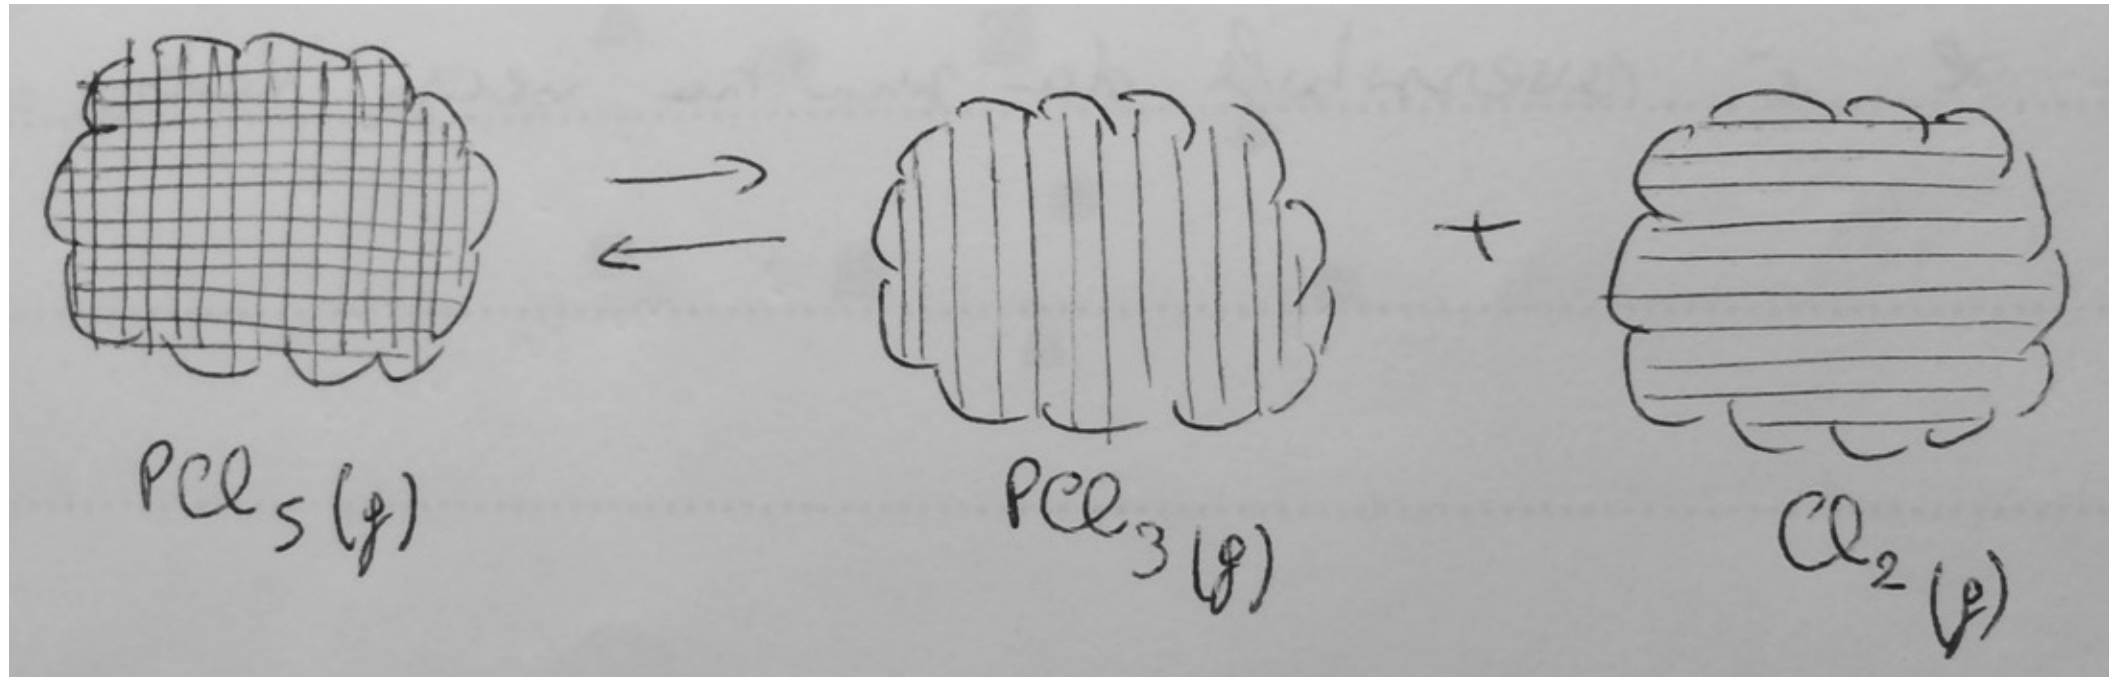 PCl5 (g) ⇌ PCl3 (g) + Cl2 (g)